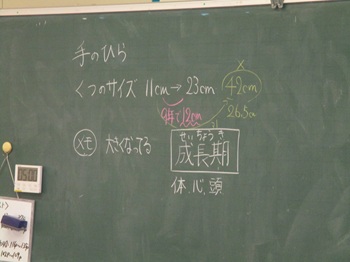 手のひら
くつのサイズ 11cm→23cm 42cm
9年で12cm 26.5cm
メモ 大きくなってる
せいちょうき
成長期
体、心、頭